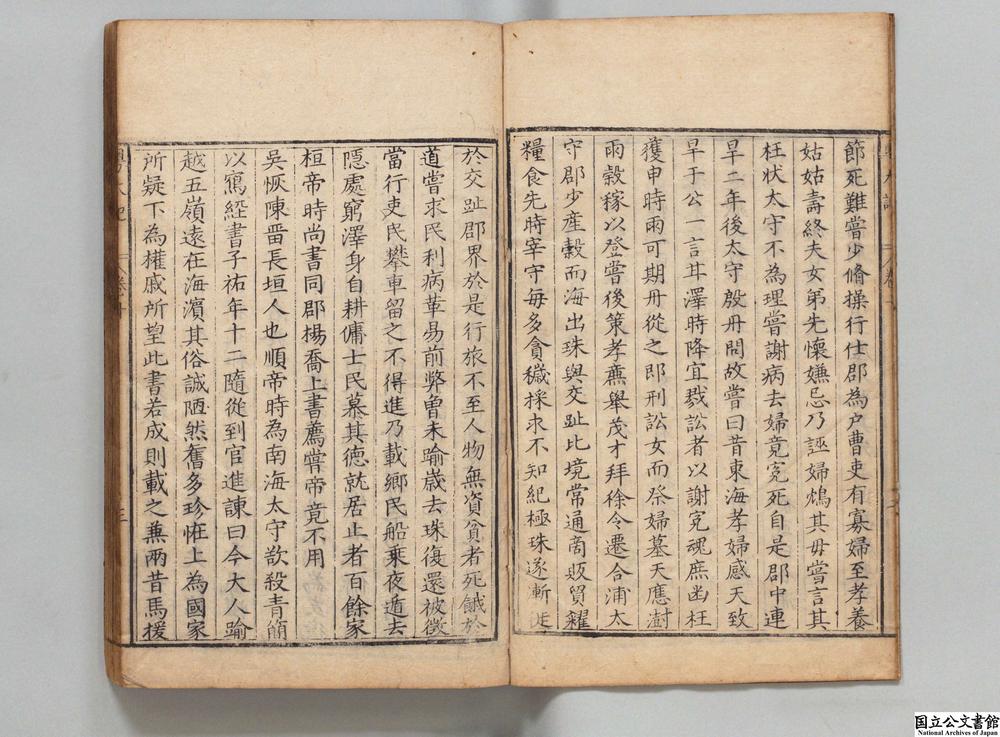 節死難嘗少脩操行仕郡為户曹吏有寡婦至孝養
姑姑壽終夫女弟先懷嫌忌乃誣婦鴆其母嘗言其
枉状太守不為理嘗謝病去婦竟寃死自是郡中連
旱二年後太守殷丹問故嘗曰昔東海孝婦感天致
旱于公一言其澤時降宜戮訟者以謝寃魂庶幽枉
獲申時雨可期丹從之即刑訟女而祭婦墓天應澍
雨穀稼以登嘗後策孝廉舉茂才拜徐令遷合浦太
守郡少産穀而海出珠與交趾比境常通啇販貿糴
糧食先時宰守毎多貪穢採求不知紀極珠遂漸徙
於交趾郡界於是行旅不至人物無資貧者死餓於
道嘗求民利病革易前弊曽未踰歳去珠復還被徴
當行吏民攀車留之不得進乃載鄉民船乗夜遁去
隱處窮澤身自耕傭士民慕其德就居止者百餘家
桓帝時尚書同郡楊喬上書薦嘗帝竟不用
吳恢陳畱長垣人也順帝時為南海太守欲殺青簡
以寫經書子祐年十二隨從到官進諫曰今大人踰
越五嶺遠在海濱其俗誠陋然舊多珍恠上為國家
所疑下為權戚所望此書若成則載之兼兩昔馬援
国立公文書館
National Archives of Japan